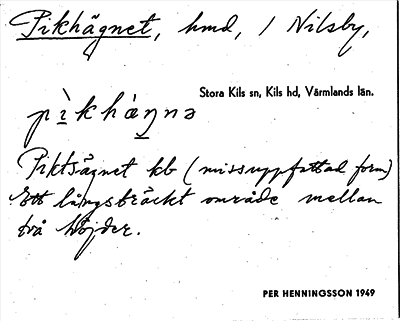 Pikhägnet, hmd, / Nilsby,
Stora Kils sn, Kils hd, Värmlands län.
pìkhàŋnə
Piktsägnet kb (missuppfattad form)
Ett långsträckt område mellan
två höjder.
PER HENNINGSSON 1949